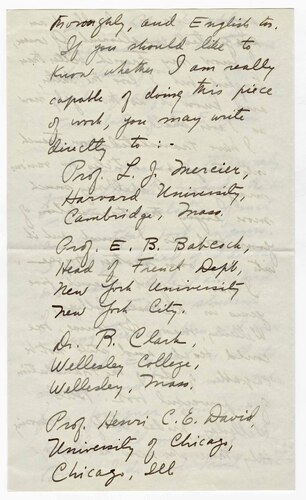 thoroughly, and English too.
If you should like to
know whether I am really
capable of doing this piece
of work, you may write
directly to : -
Prof. L. J. Mercier,
Harvard University,
Cambridge, Mass.
Prof. E. B. Babcock,
Head of French Dept,
New York University
New York City.
Dr. R. Clark,
Wellesley College,
Wellesley, Mass.
Prof. Henri C. E. David,
University of Chicago,
Chicago, Ill